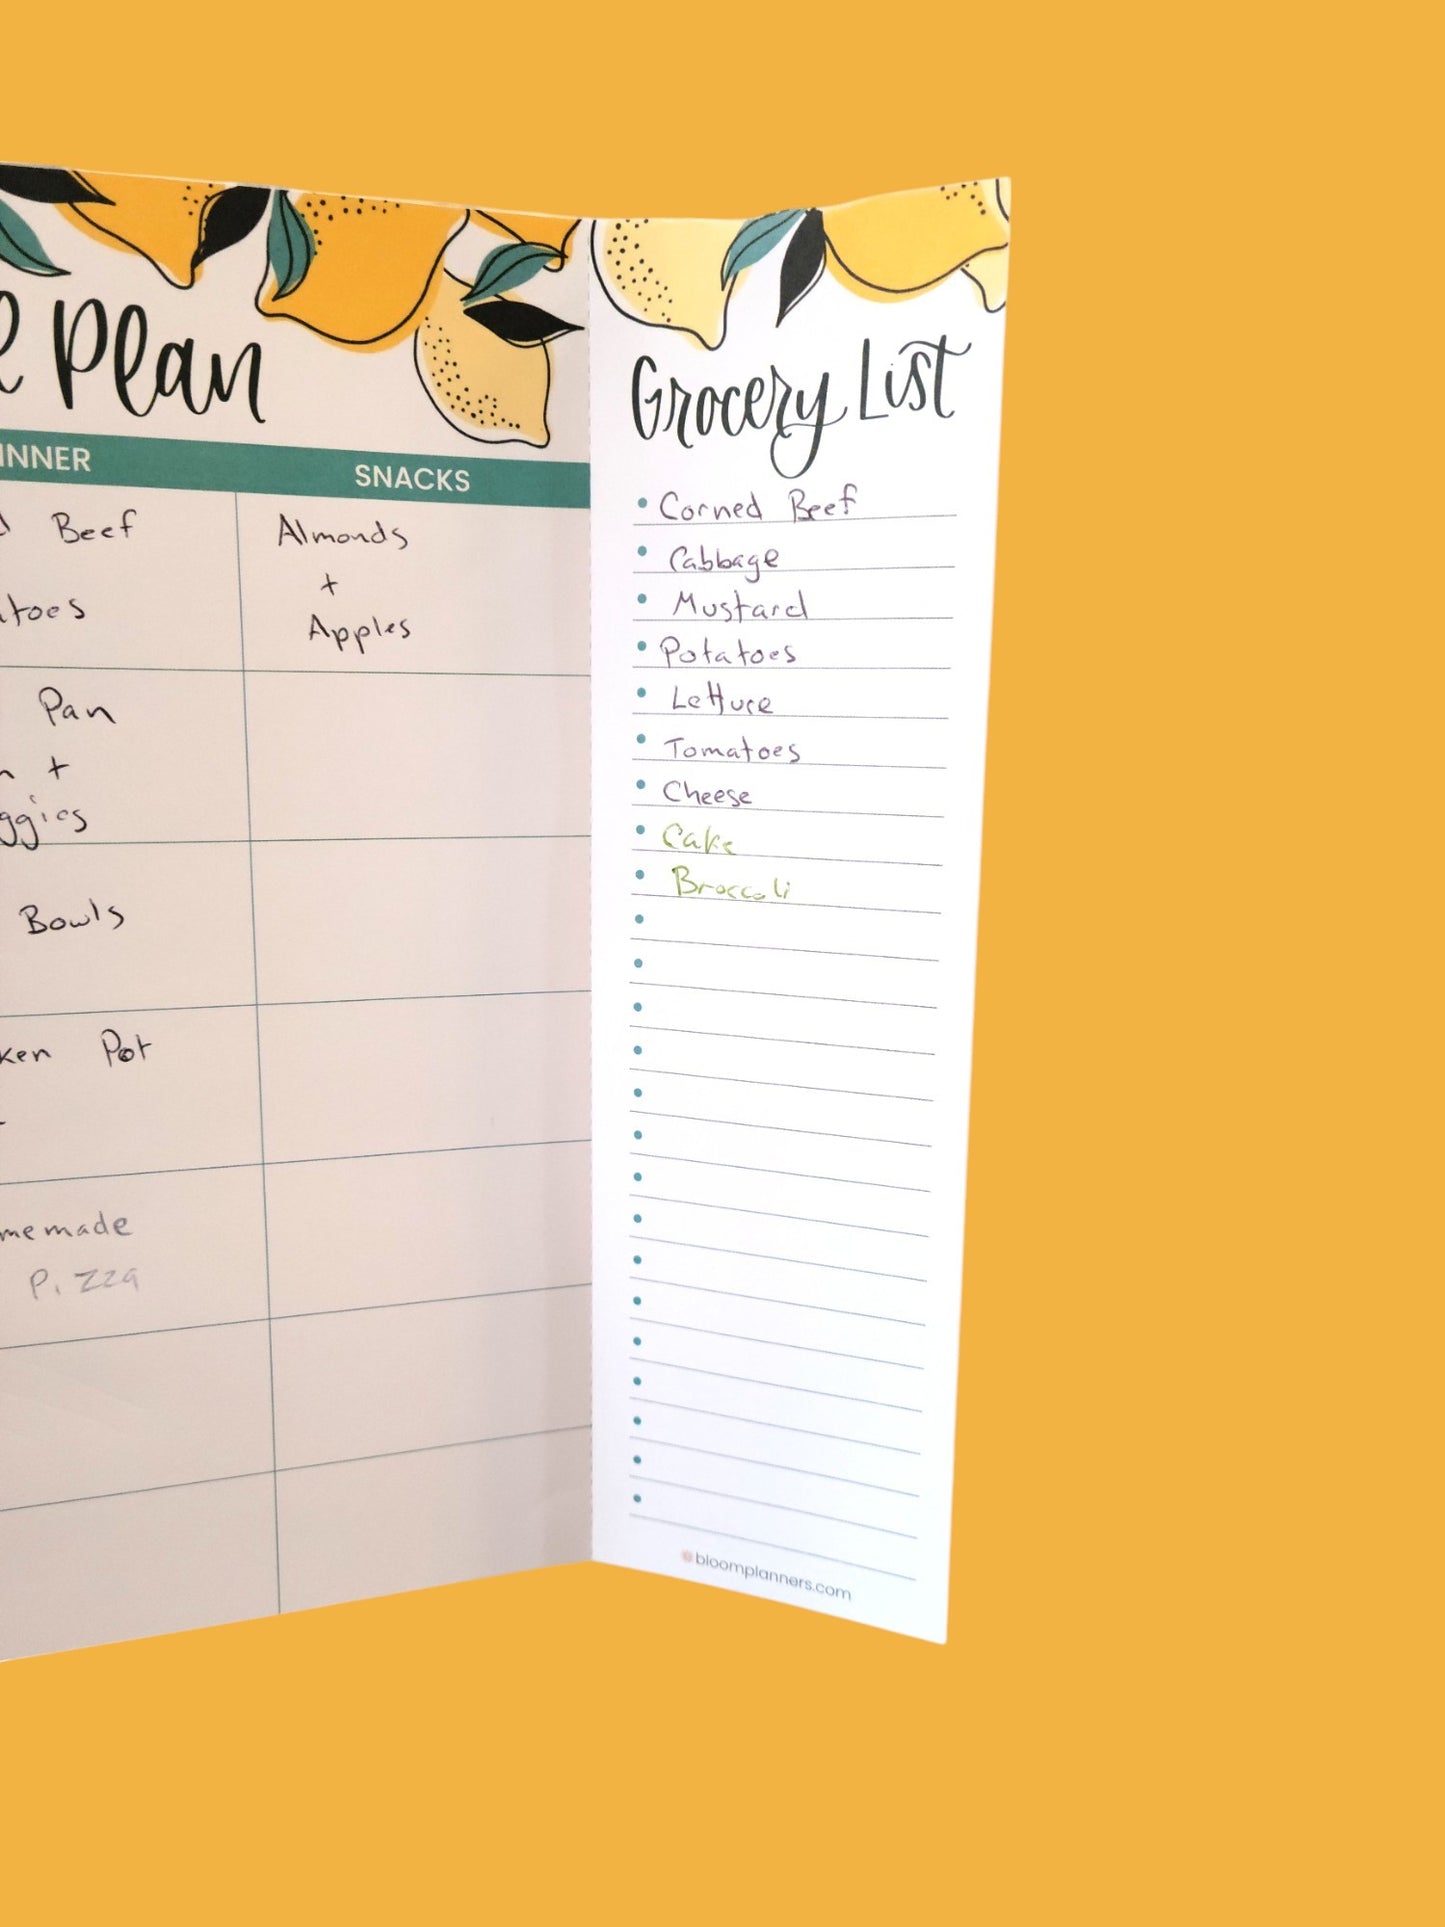 Plan
INNER
SNACKS
Beef
Almonds
+
Apples
Pan
+
Bowls
Pot
Pizza
Grocery List
Corned Beef
Cabbage
Mustard
Potatoes
Lettuce
Tomatoes
Cheese
Cake
Broccoli
bloomplanners.com